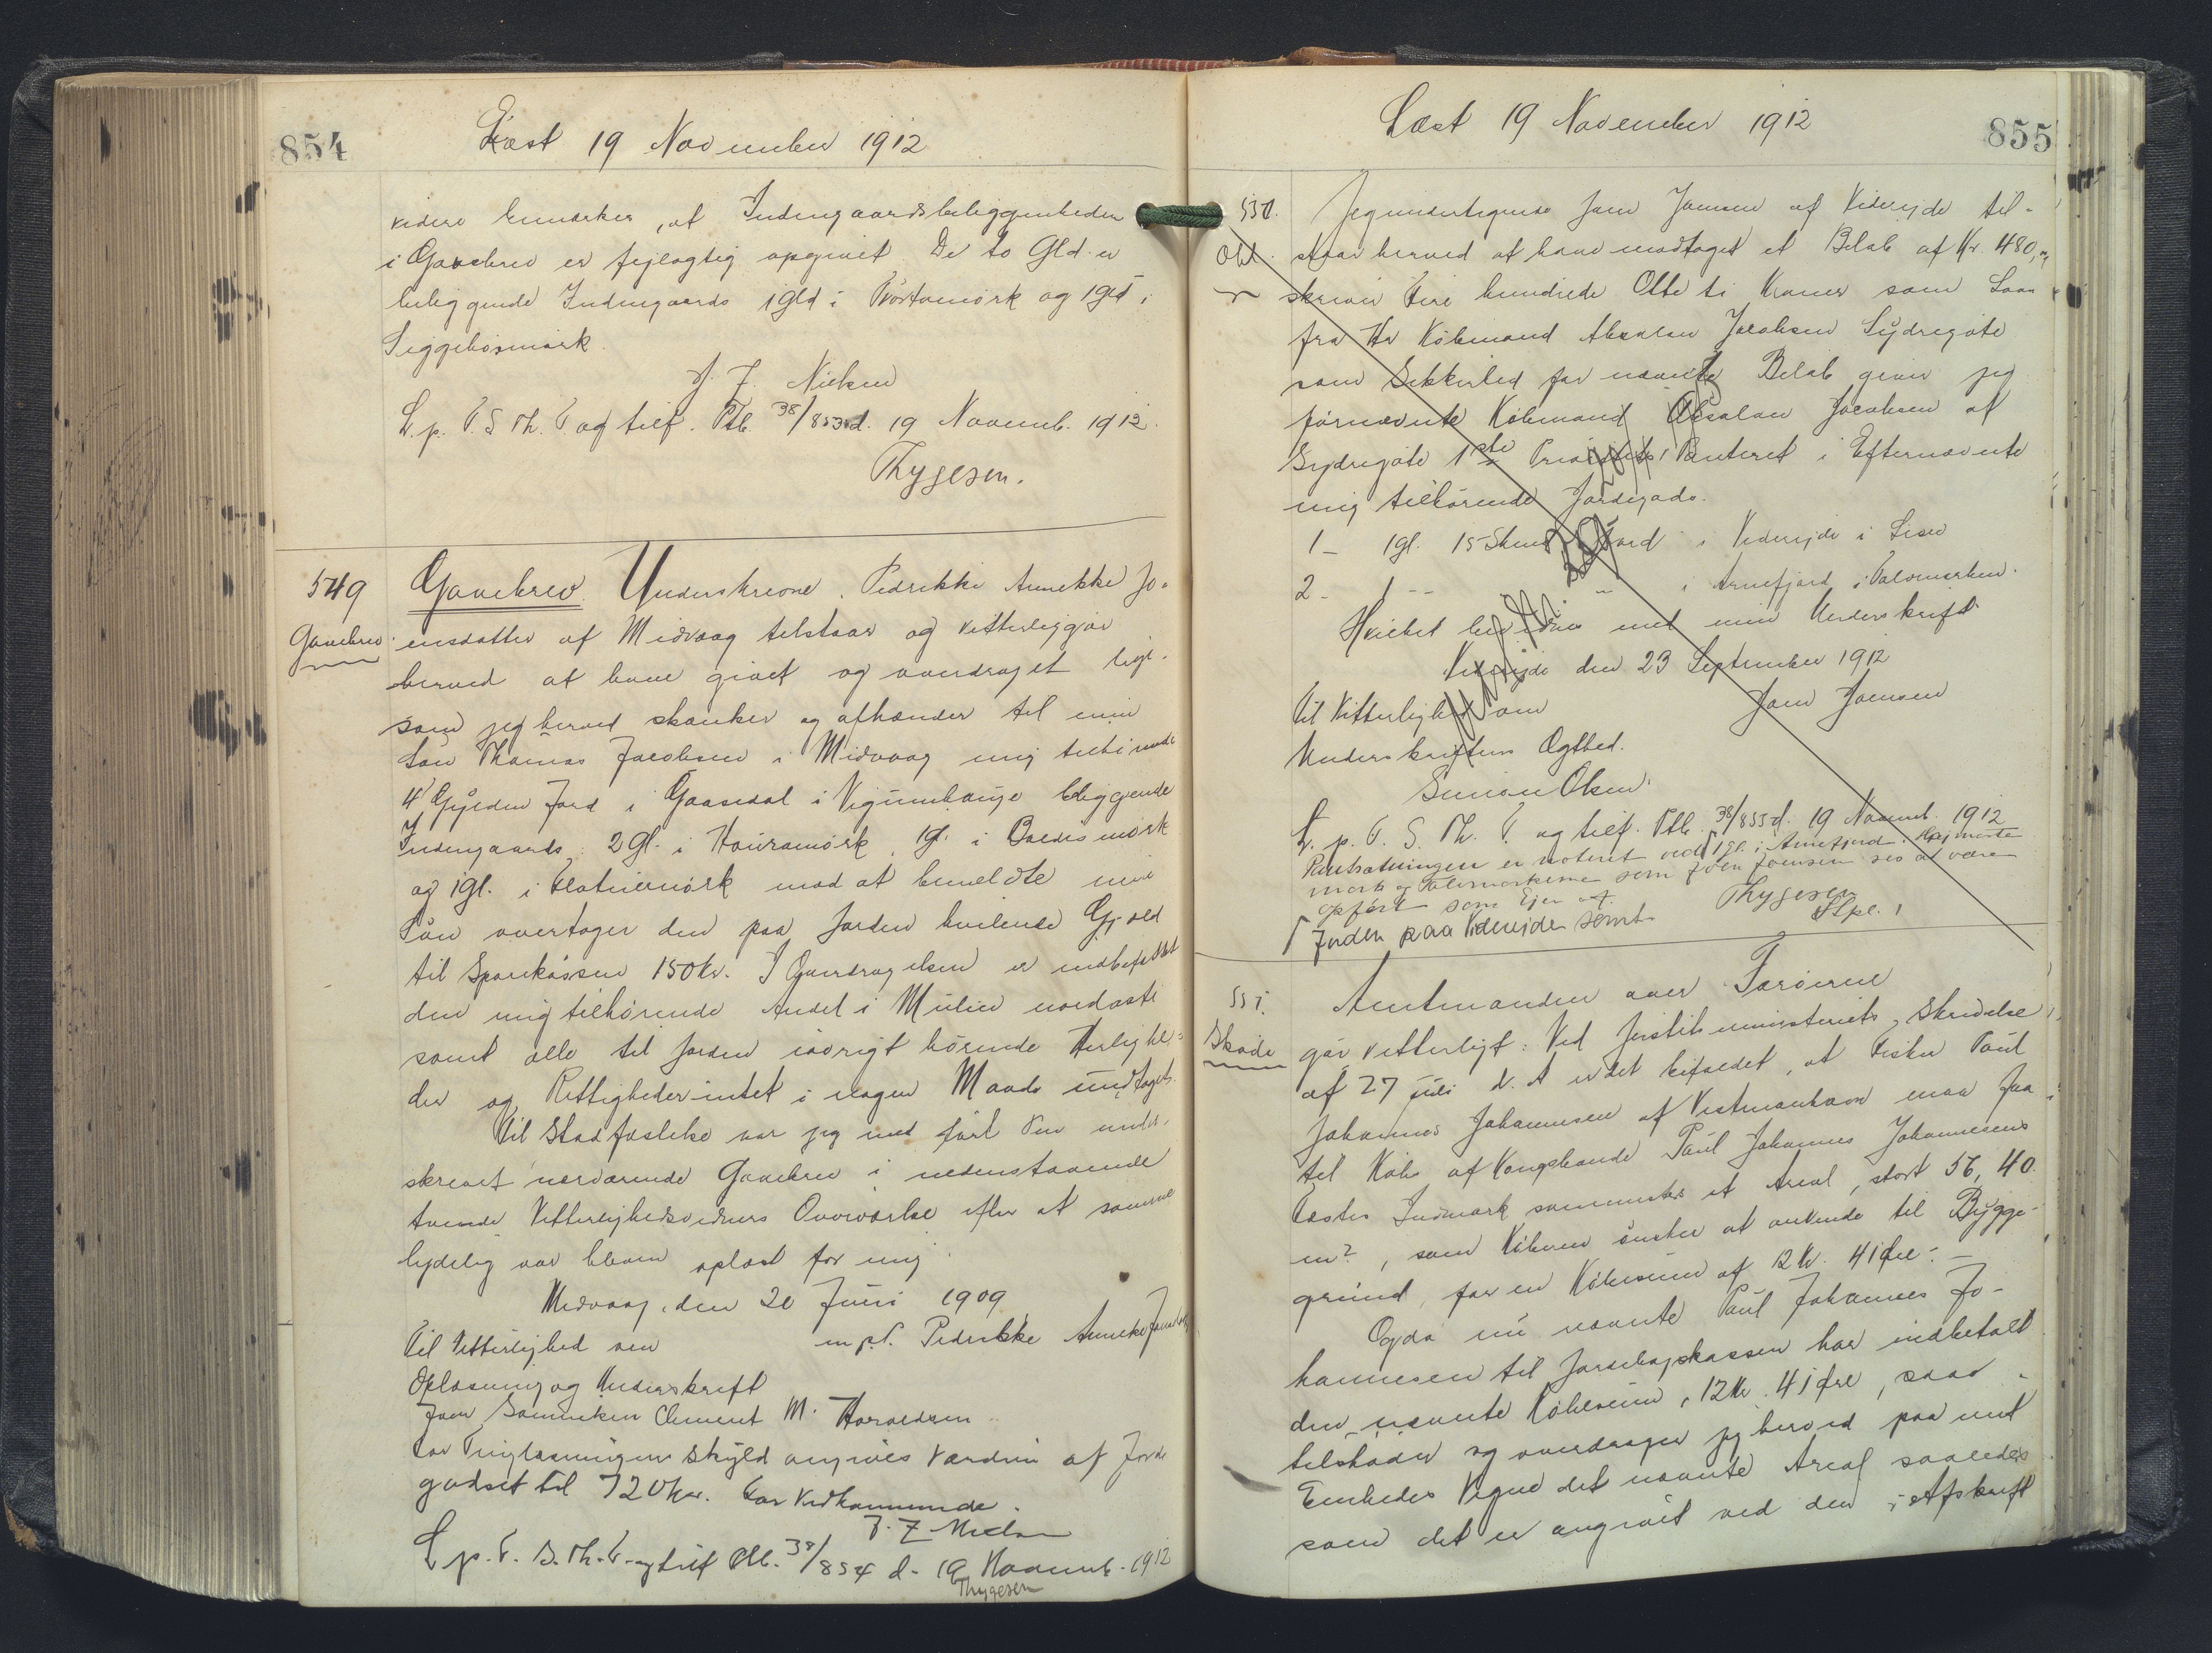 854
Læst 19 November 1912
videre bemærkes, at Indengaardsbeliggenheden
i Gavebrev er fejlagtig opgivet De to Gld. er
beliggende Indengaards 1 gld i og 1 gld i
J. F. Nielsen
L. p. V. S. Th. V. og tilf. Ptb. 38/853 d. 19 Novemb. 1912.
Thygesen.
549
Gavebrev
Gavebrev. Underskrevne. Pedrikke Annekke Jo-
ensdatter af Midvaag tilstaar og vitterliggør
herved at have givet og overdraget lige-
som jeg herved skænker og afhænder til min
Søn Thomas Jacobsen i Midvaag mig tilhørende
4 Gylden Jord i Gaasedal i beliggende
Indengaards: 2 gl. i 1 gl. i
og 1 gl. i mod at bemeldte min
Søn overtager den paa Jorden hvilende Gjæld
til Sparekassen 150 Kr. I Overdragelsen er indbefattet
den mig tilhørende Andel i
samt alle til Jorden iøvrigt hørende Herlighe-
der og Rettigheder intet i nogen Maade undtaget.
Til Stadfæstelse har jeg med ført Pen under-
skrevet nærværende Gavebrev i nedenstaaende
tvende Vitterlighedsvidners Overværelse efter at samme
lydelig var bleven oplæst for mig
Midvaag, den 20 Juni 1909
Til Vitterlighed om m. f. P. Pedrikke Anneke Joensdatter
Oplæsning og Underskrift
Joen Samuelsen Clement M. Haraldsen
For Tinglæsningens Skyld angives Værdien af Jorde
godset til 720 Kr. For Vedkommende.
J. F. Nielsen
L. p. V. S. Th. V. og tilf. Ptb. 38/854 d. 19 Novemb. 1912
Thygesen
Læst 19 November 1912
855
550.
Obl.
Jeg undertegnede Joen Joensen af Viderejde til-
staar herved at have modtaget et Beløb af Kr. 480,
skriver Fire hundrede Otte ti Kroner som Laan
fra Hr Købmand Absalon Jacobsen Sydregøte
som Sikkerhed for nævnte Beløb giver jeg
førnævnte Købmand Absalon Jacobsen af
Sydregøte 1ste Prioritets Panteret i Efternævnte
mig tilhørende Jordegods.
1 - 1 gl. 15 Skind Jord i Viderejde i
2 - 1 - - i Arnefjord i
Hvilket bevidnes med min Underskrift
Viderejde den 23 September 1912
Til Vitterlighed om Joen Joensen
Underskriftens Ægthed.
Simon Olsen.
L. p. V. S. Th. V. og tilf. Ptb. 38/855 d. 19 Novemb. 1912
Pantsætningen er noteret ved 1 gl. i Arnefjord i
mørk og som Joen Joensen ses at være
opført som Ejer af. Thygesen
Γ Jorden paa Videreide samt
551.
Skøde
Amtmanden over Færøerne
gør vitterligt: Ved Justitsministeriets Skrivelse
af 27 Juli d. A er det bifaldet, at Fisker Poul
Johannes Johannesen af Vestmanhavn maa faa
til Købs af Kongsbonde Poul Johannes Johannesens
Fæstes Indmark sammesteds et Areal, stort 56,40
m², som Køberen ønsker at anvende til Bygge-
grund, for en Købesum af 12 Kr. 41 Øre. -
Og da nu nævnte Poul Johannes Jo-
hannesen til Jordebogskassen har indbetalt
den nævnte Købesum, 12 Kr. 41 Øre, saa
tilskøder og overdrager jeg herved paa mit
Embedes Vegne det nævnte Areal saaledes
som det er angivet ved den i Afskrift